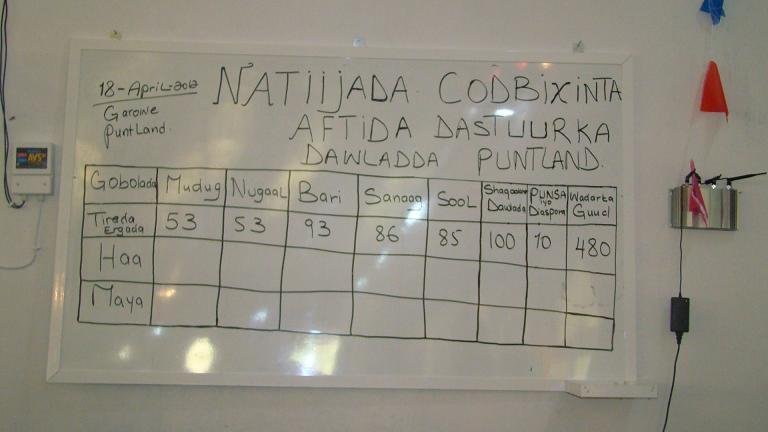 18-April-2012
Garowe
PuntLand.
NATIIJADA CODBIXINTA
AFTIDA DASTUURKA
DAWLADDA PUNTLAND.
Gobolada Mudug NugaaL Bari Sanaag SooL Shaqaalaha Dawlada PUNSA iyo Diaspora Wadarta Guud
Tirada Ergada 53 53 93 86 85 100 10 480
Haa
Maya
AVS